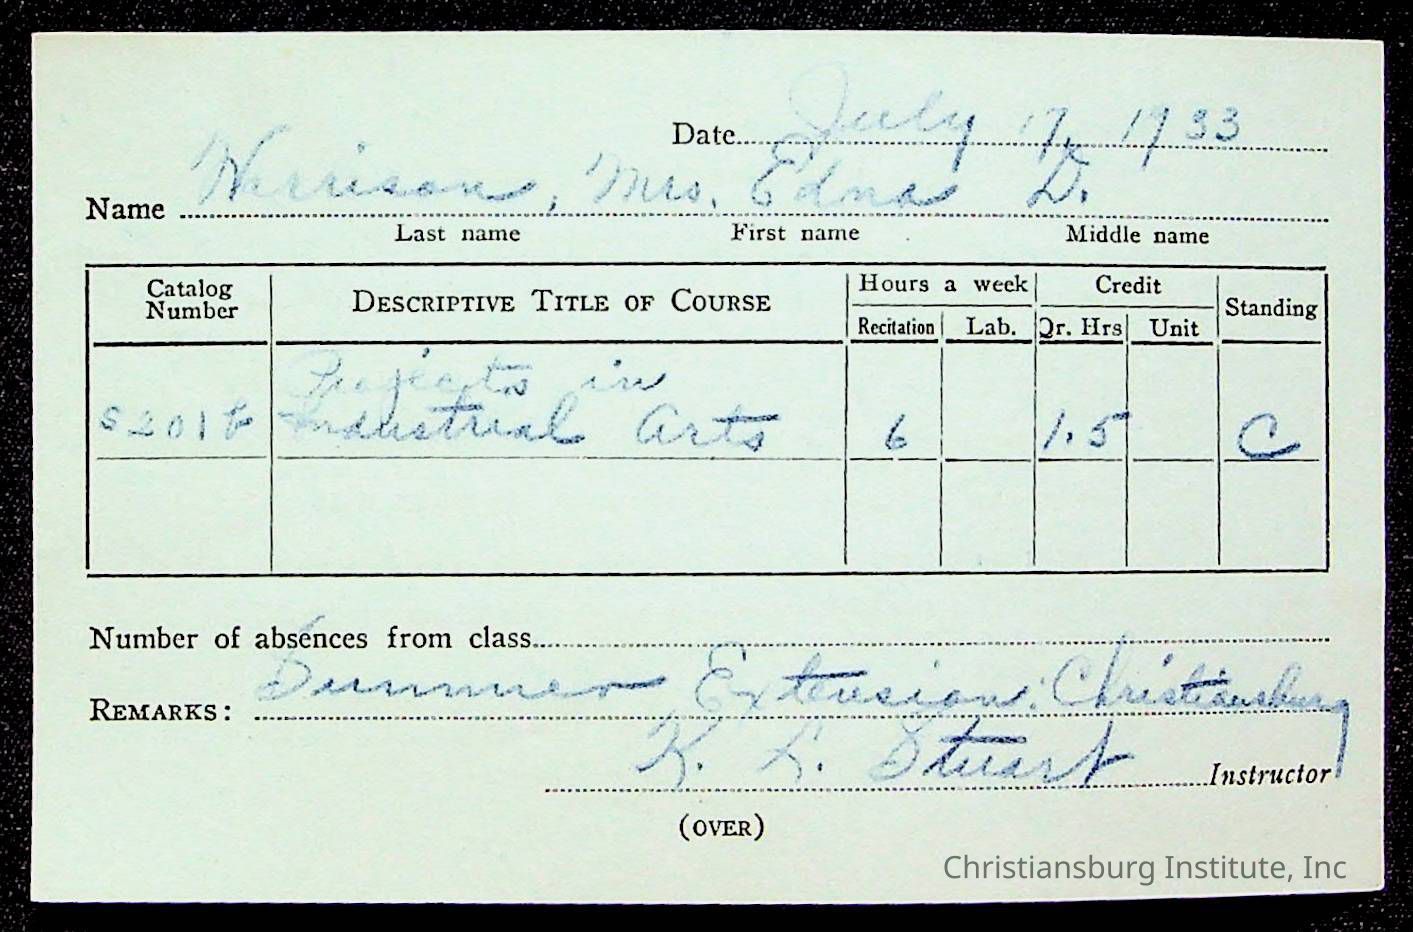 Date July 17, 1933
Name Wrrison, Mrs. Edna D.
Last name First name Middle name
Catalog Number DESCRIPTIVE TITLE OF COURSE Hours a week Credit Standing
Recitation Lab. Qr. Hrs Unit
Projects in
S201 Industrial Arts 6 1.5 C
Number of absences from class
REMARKS: Summer Extension: Christiansburg
K. L. Stuart Instructor
(OVER)
Christiansburg Institute, Inc